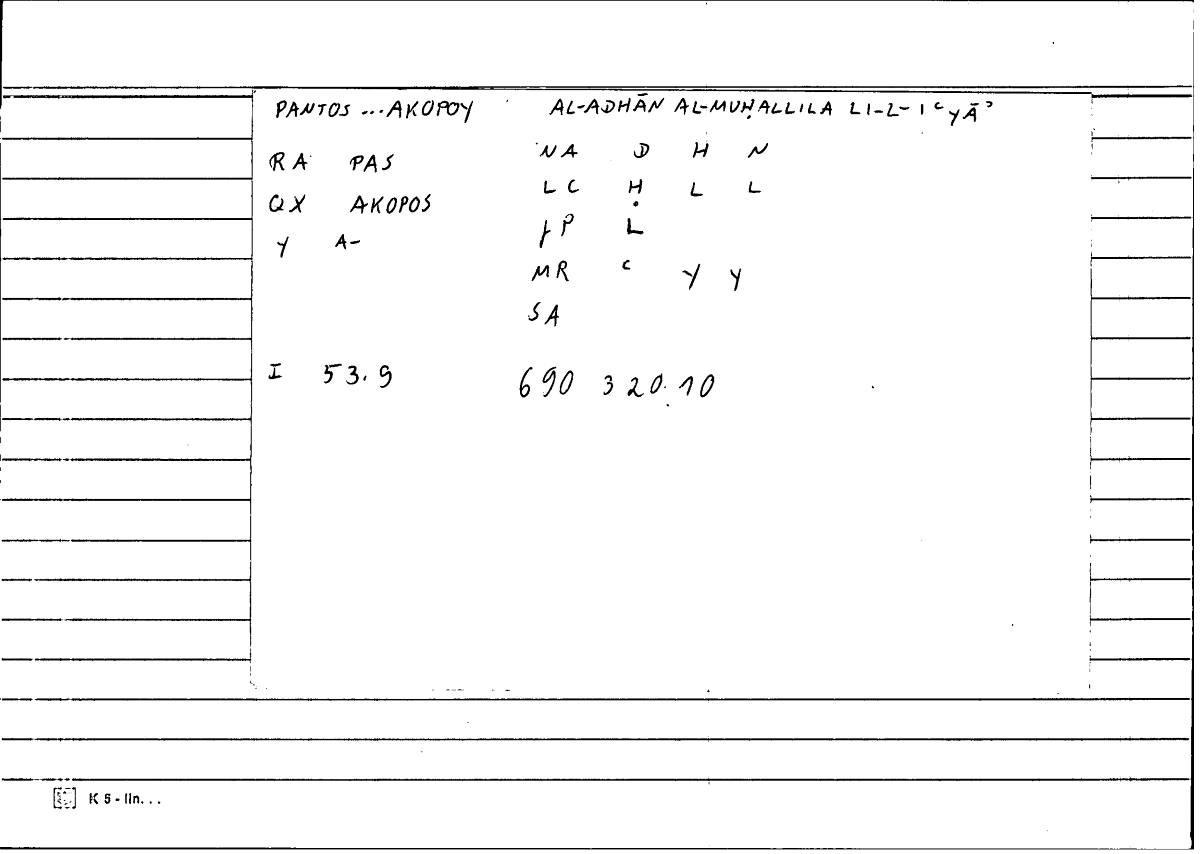 PANTOS ... AKOPOY AL-ADHĀN AL-MUḤALLILA LI-L-IʿYĀʾ
RA PAS NA D H N
QX AKOPOS LC Ḥ L L
Y A- JP L
MR ʿ Y Y
SA
I 53.9 690 320.10
K 5 - lin...